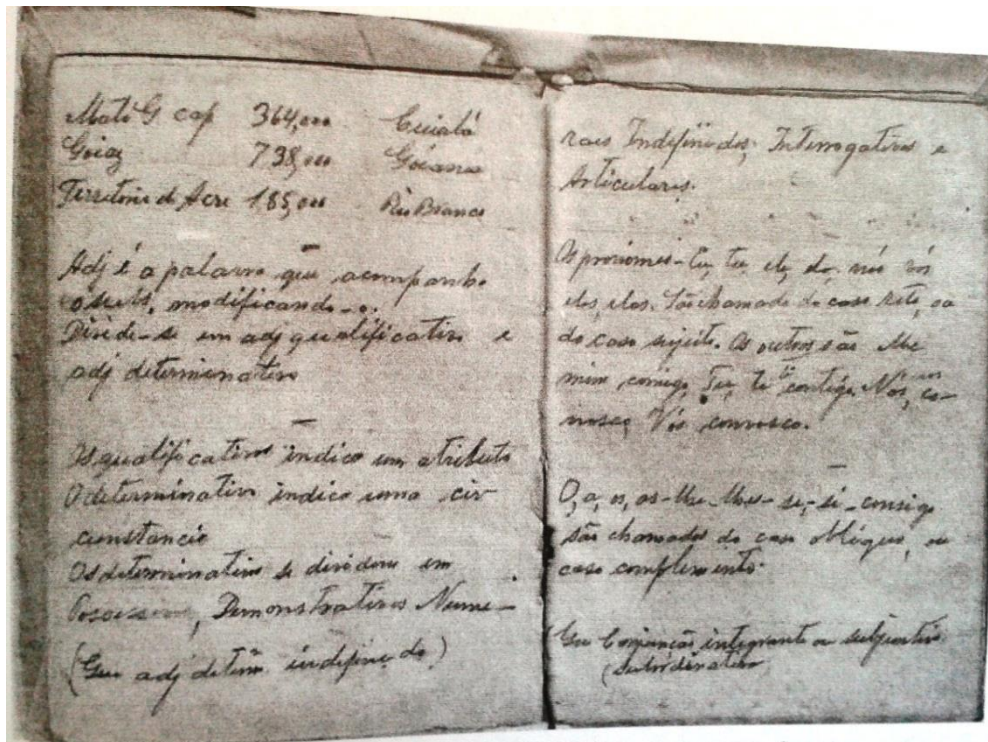 Mato G cap 364,000 Cuiabá
Goiaz 738,000 Goiania
Territorio d Acre 185,000 Rio Branco
Adj é a palavra que acompanha
o subs, modificando-o.
Divide-se em adj qualificativo e
adj determinativo
Os qualificativos indica um atributo
O determinativo indica uma cir
cunstancia
Os determinativos se dividem em
Possessivos, Demonstrativos Nume-
(Que adj determ indefinido)
raes Indefinidos, Interrogativos e
Articulares.
Os pronomes - Eu, tu, ele, ela nós vós
eles, elas. São chamado do caso reto, ou
do caso sujeito. Os outros são Me
mim comigo, Tu, te ti contigo Nós, nos co-
nosco Vós convosco.
O, a, os, as - lhe - lhes - se, - si - consigo
são chamados do caso obliquo, ou
caso complemento.
(Que Conjunção integrante ou subjuntiva
(subordinativa